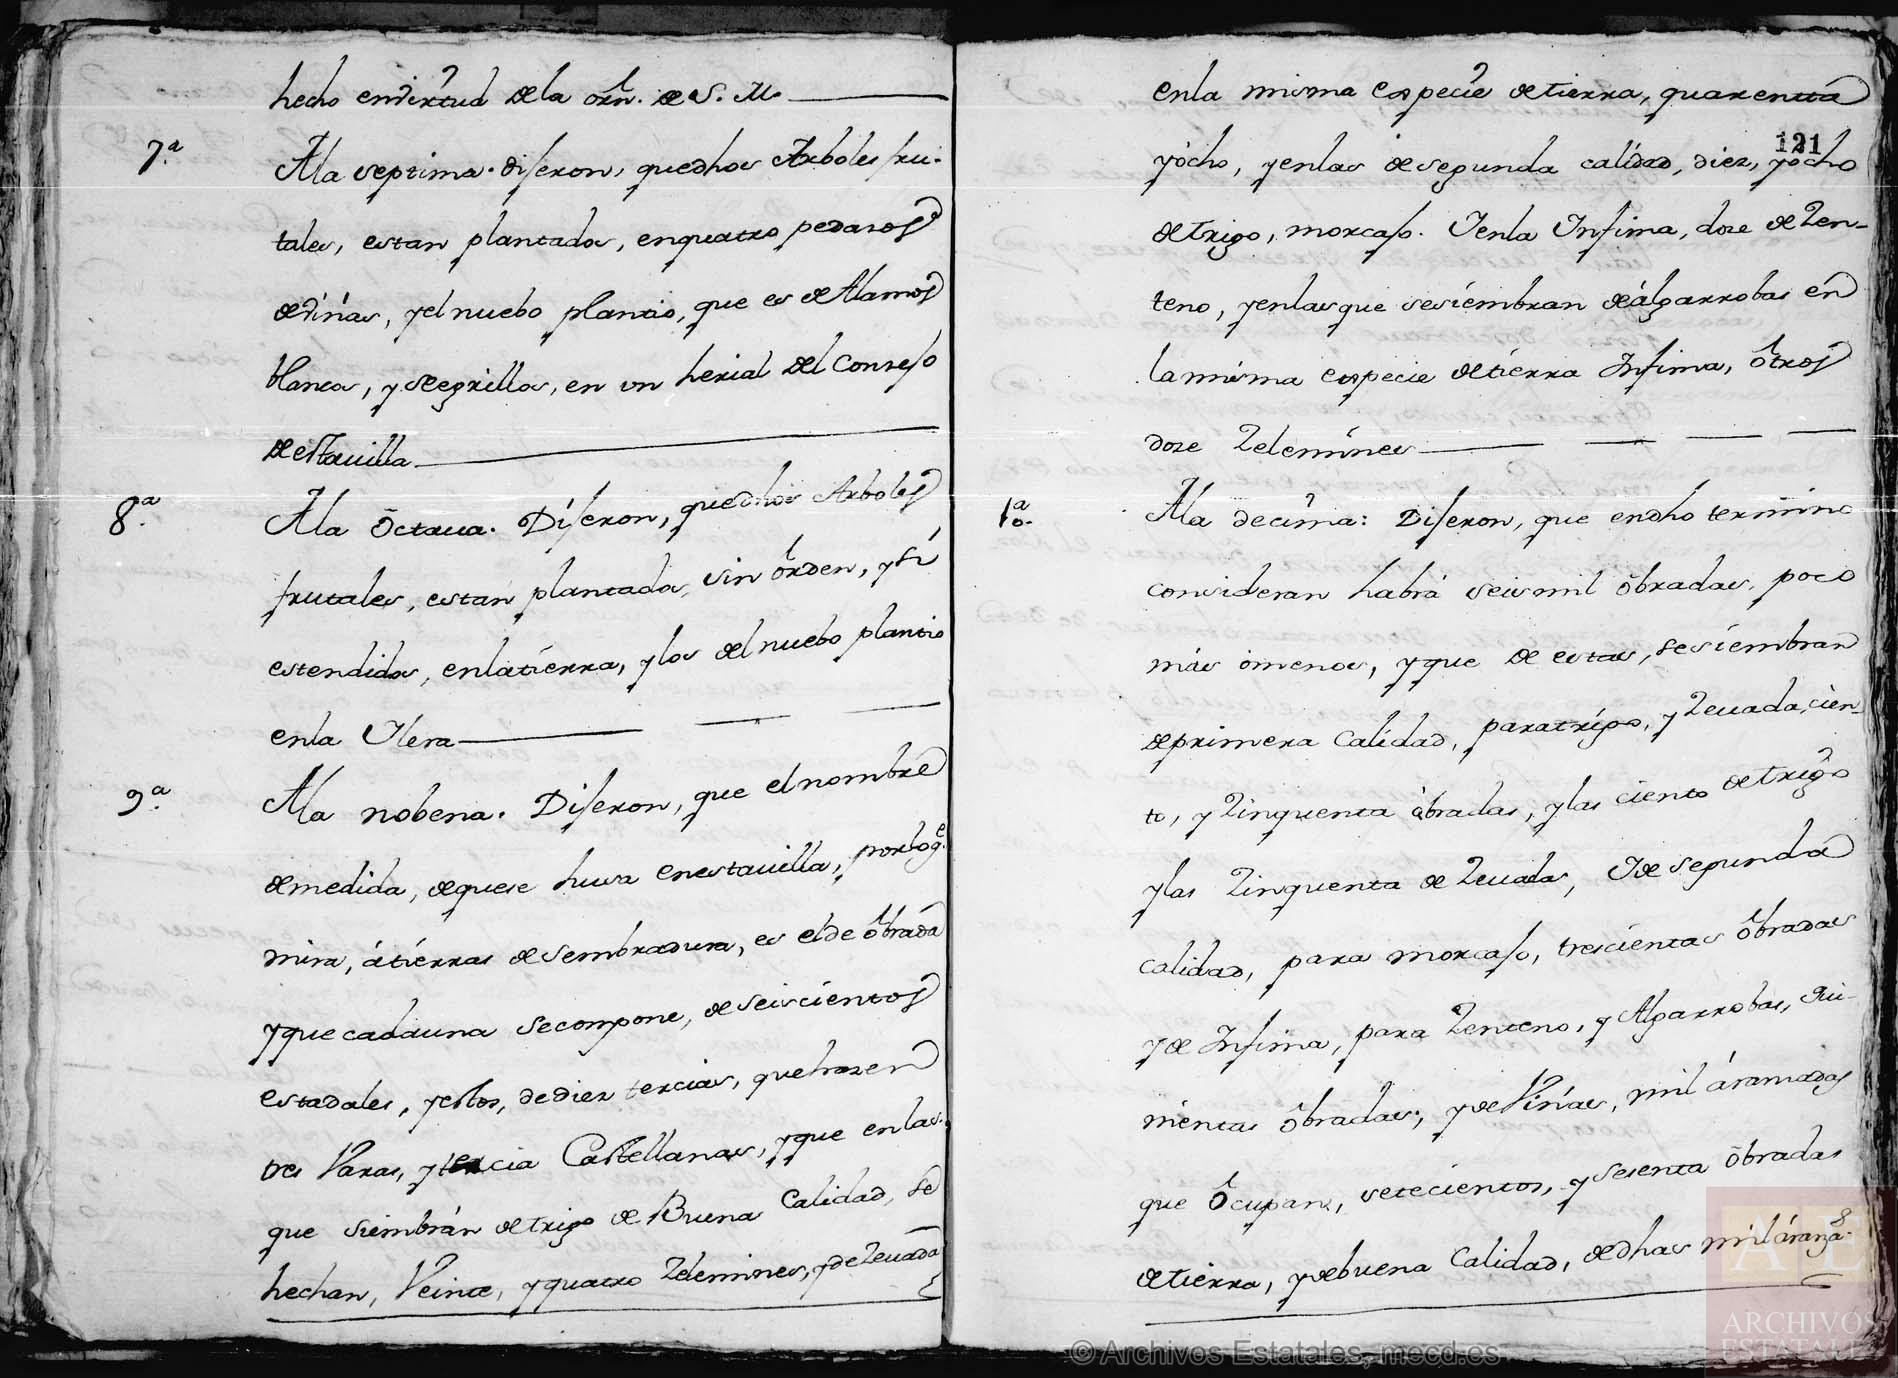 hecho envirtud dela orn. de S. M.
7.ª
Ala septima. dijeron, quedhos Arboles fru-
tales, estan plantados, enquatro pedazos
deviñas, yel nuebo plantio, que es de Alamos
blancos, y Negrillos, en un herial del Consejo
de estauilla
8.ª
Ala Octaua. Dijeron, quedhos Arboles
frutales, están plantados, sin órden, y si
estendidos, enlatierra, ylos del nuebo plantio
enla Ilera
9.ª
Ala nobena. Dijeron, que el nombre
demedida, dequese husa enestauilla, porloq.e
mira, átierras desembradura, es elde obrada
yque cadauna secompone, de seiscientos
estadales, yestos, dediez tercias, quehazen
tres Varas, ytercia Castellanas, yque enlas
que siembrán detrigo de Buena Calidad, se
hechan, Veinte, yquatro Zelemines, ydeZeuada
121
enla misma especie detierra, quarenta
yócho, yenlas desegunda calidad, diez, yócho
detrigo, morcajo. Yenla Infima, doze de Zen-
teno, yenlasque sesiembran deálgarrobas en
lamisma especie detierra Infima, ótros
doze Zelemines
10.ª
Ala decima: Dijeron, que endho termino
consideran habrá seismil óbradas, poco
más ómenos, yque de estas, sesiembran
deprimera Calidad, paratrigo, y Zeuada, cien-
to, y Zinquenta óbradas, ylas ciento detrigo
ylas Zinquenta de Zeuada, Yde segunda
Calidad, para morcajo, trescientas óbradas
yde Infima, para Zenteno, y Algarrobas, qui-
nientas óbradas; ydeViñas, mil áranzadas
que Ocupan, setecientos, y sesenta óbradas
detierra, ydebuena Calidad, dedhas mil áranza.s
© Archivos Estatales, mecd.es
AE
ARCHIVOS
ESTATALES